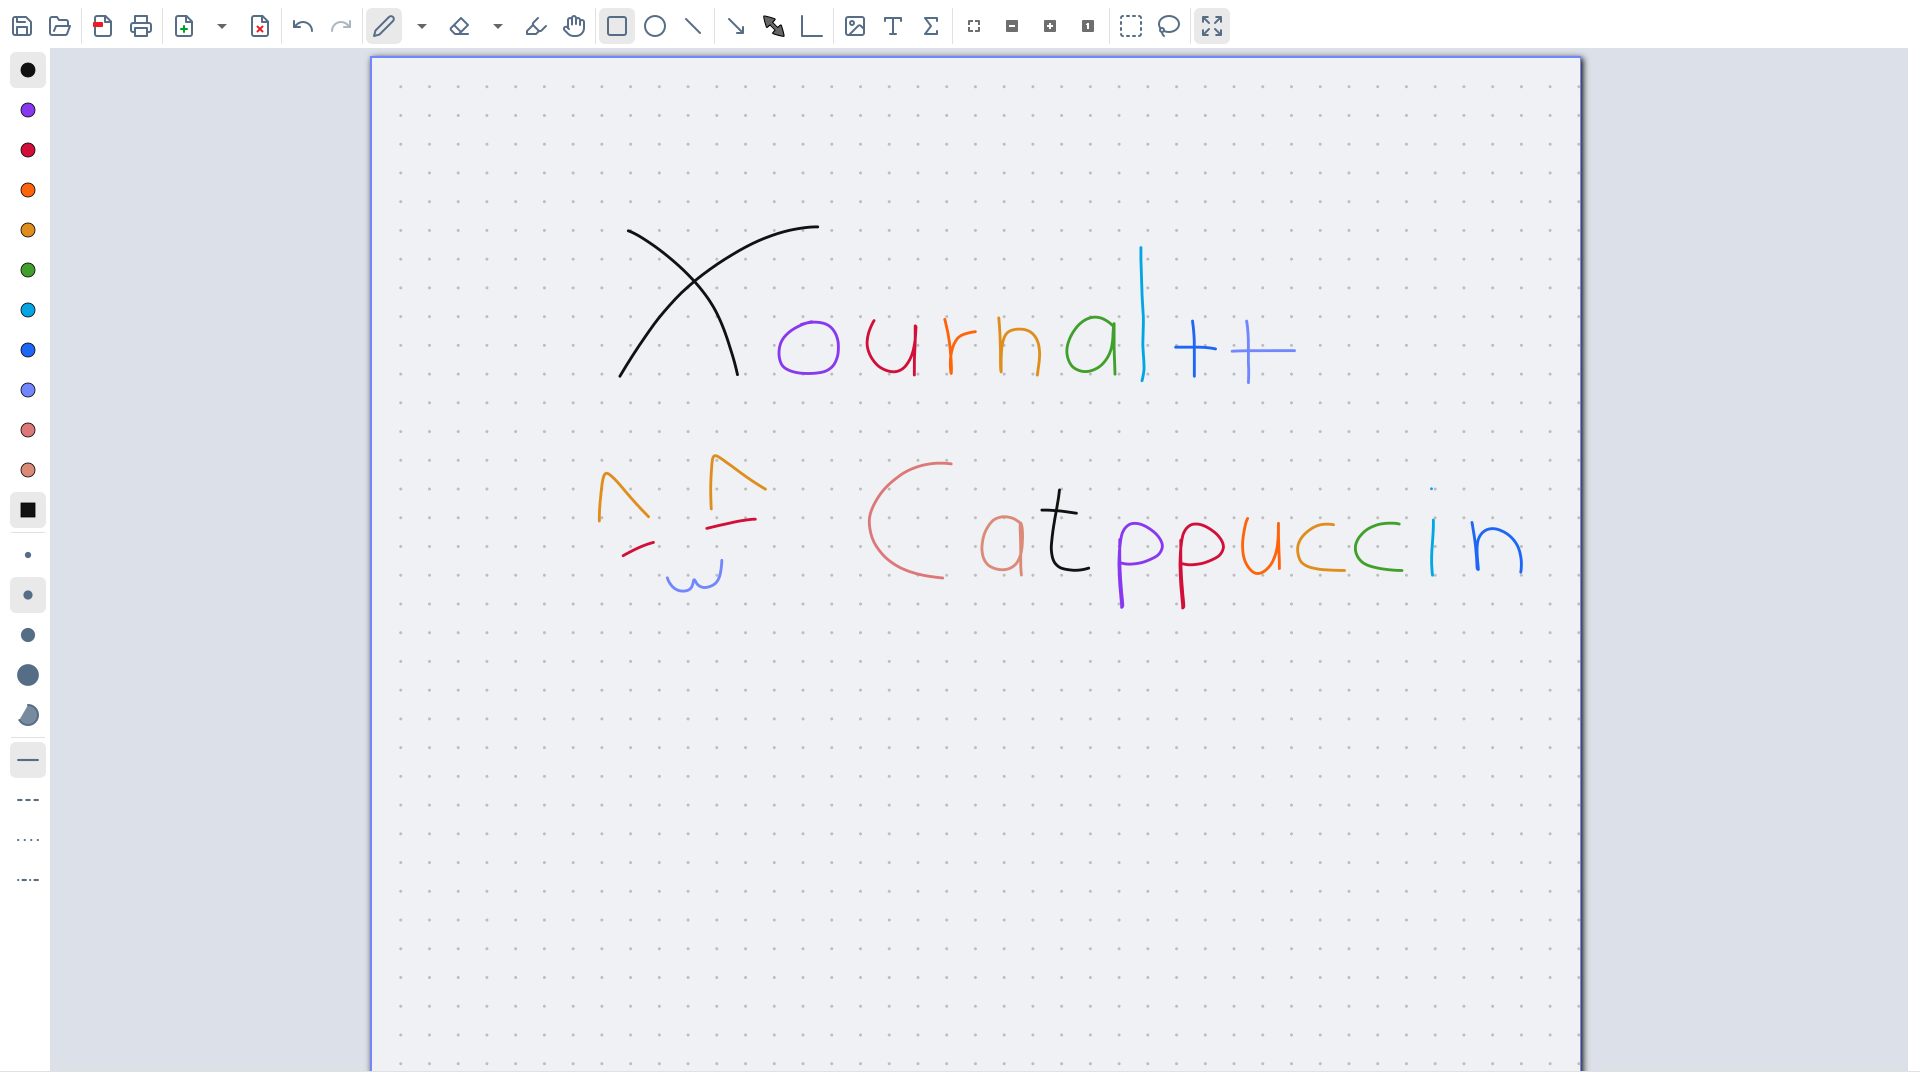 Xournal++
Catppuccin